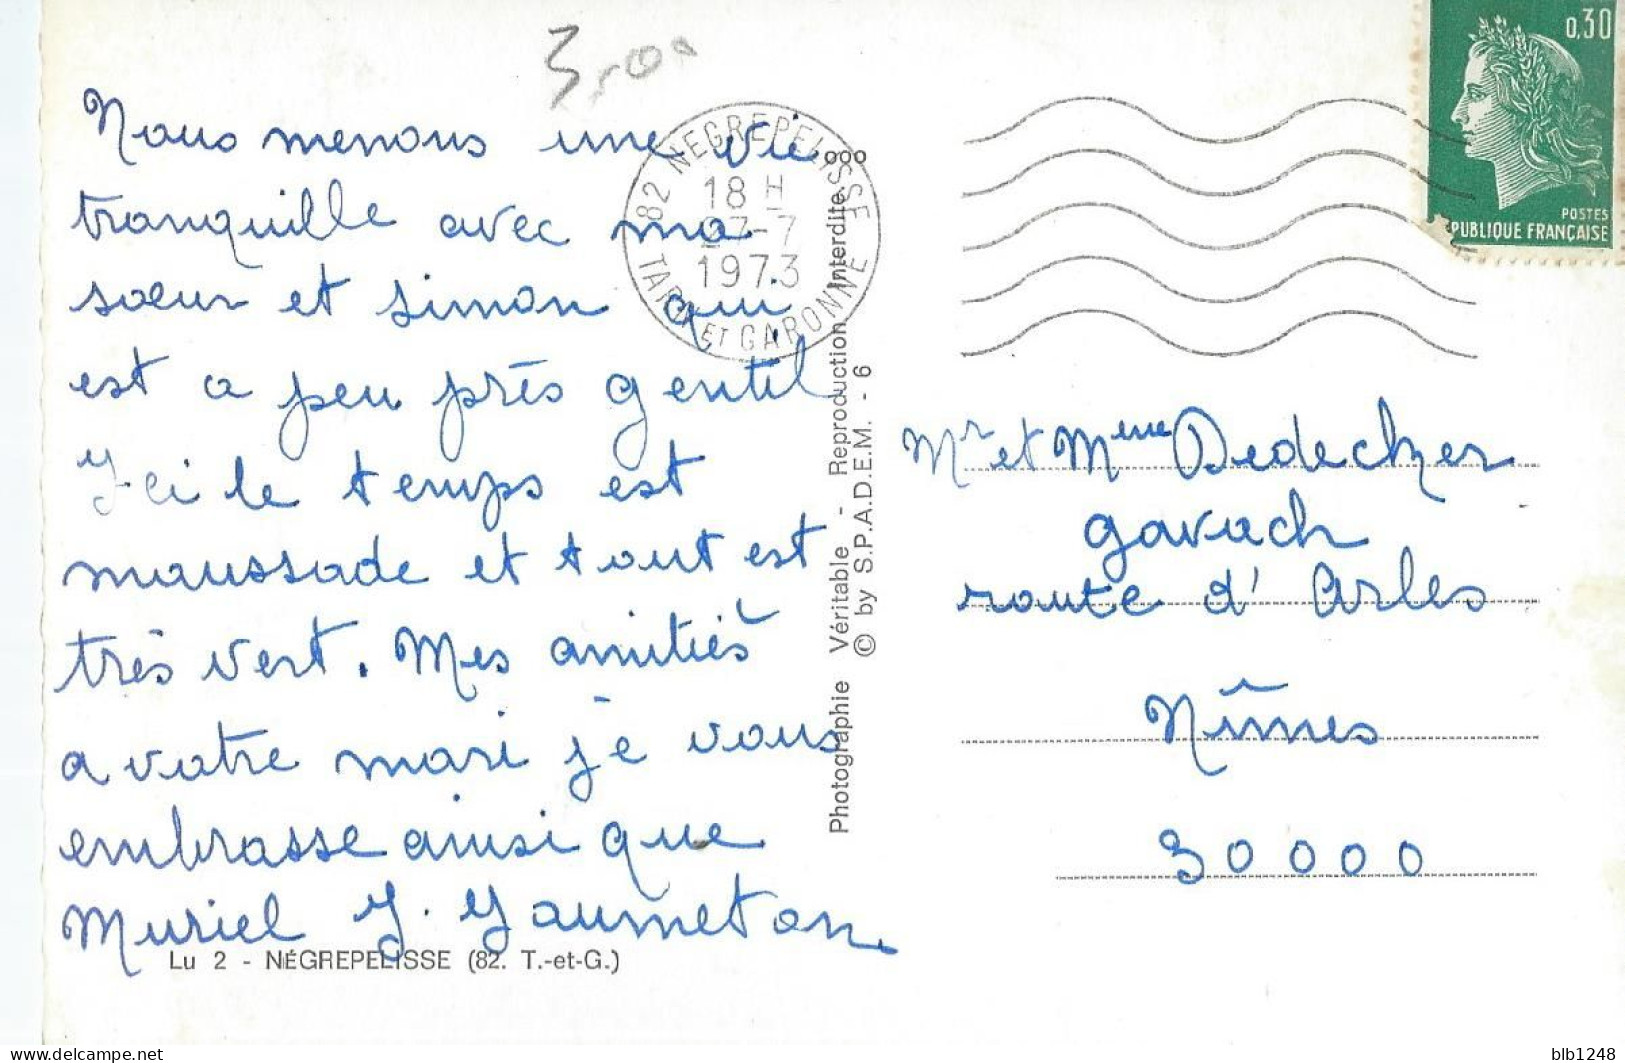 3,00
Nous menons une vie
tranquille avec ma
sœur et Simon qui
est a peu près gentil
Ici le temps est
maussade et tout est
très vert. Mes amitiés
a votre mari je vous
embrasse ainsi que
Muriel
Lu 2 - NÉGREPELISSE (82. T.-et-G.)
82 NEGREPELISSE
18 H
27-7
1973
TARN ET GARONNE
Photographie Véritable - Reproduction Interdite
© by S.P.A.D.E.M. - 6
0,30
POSTES
PUBLIQUE FRANÇAISE
Mr et Mme
gavach
route d' Arles
Nîmes
30000
blb1248